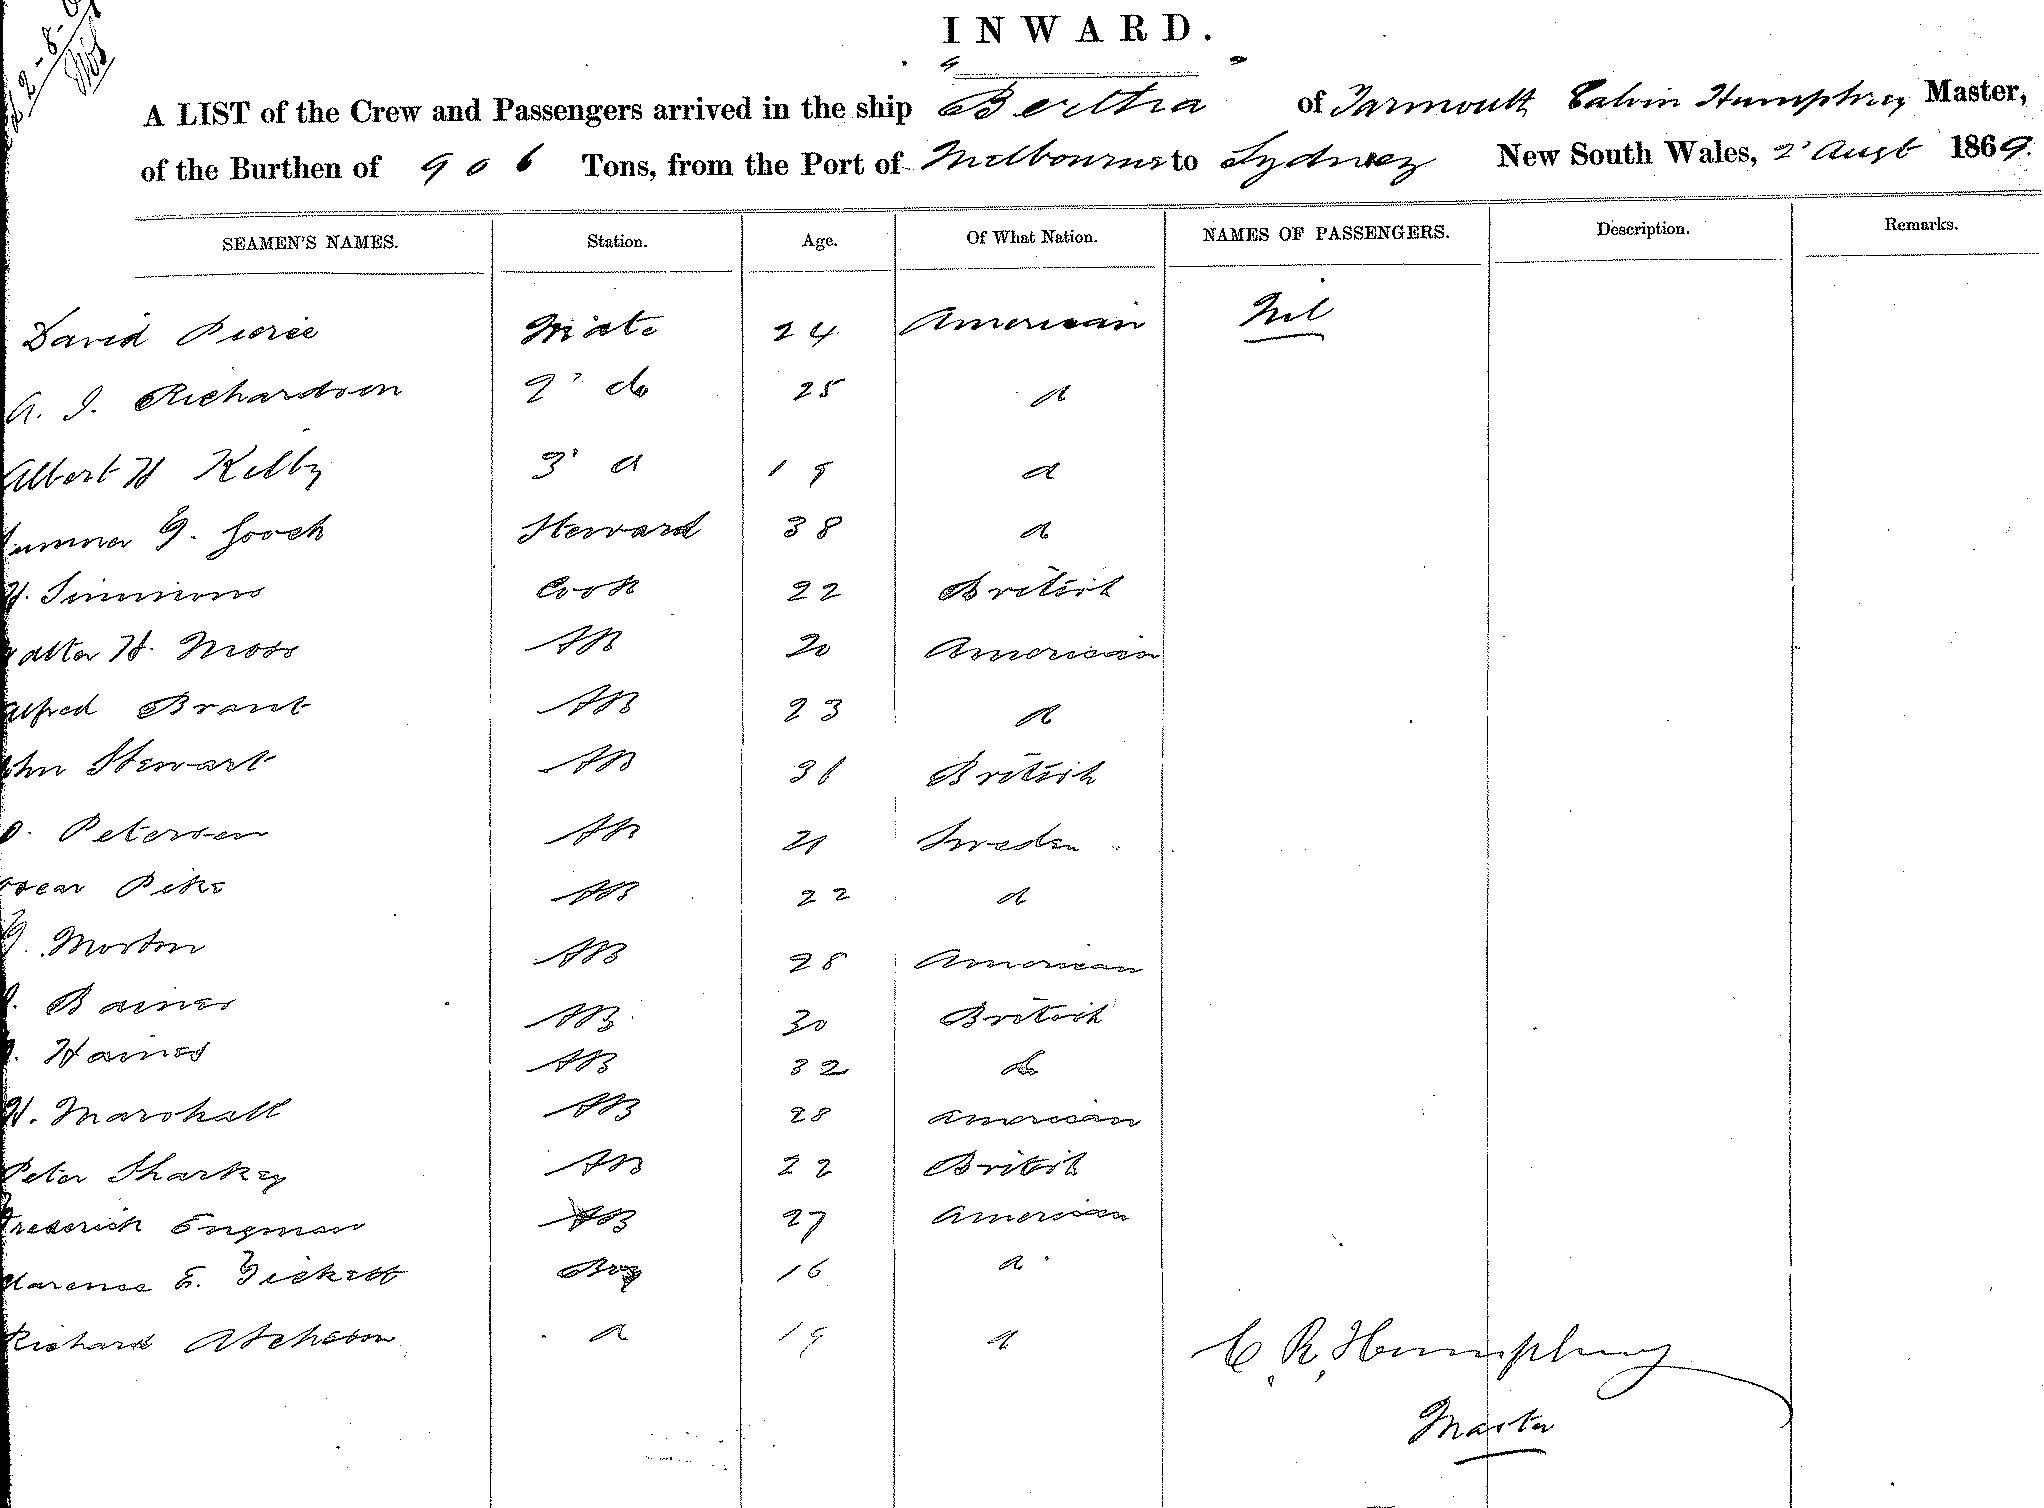 2-8-69
INWARD.
A LIST of the Crew and Passengers arrived in the ship Bertha of Yarmouth Calvin Humphrey Master,
of the Burthen of 906 Tons, from the Port of Melbourne to Sydney New South Wales, 2' Augt 1869.
SEAMEN'S NAMES. Station. Age. Of What Nation. NAMES OF PASSENGERS. Description. Remarks.
David Pierce Mate 24 American Nil
A. J. Richardson 2' do 25 d
Albert H Kelby 3' d 19 d
Sumner G. Gooch Steward 38 d
H. Simmons Cook 22 British
Walter H. Moss AB 20 American
Alfred Brant AB 23 d
John Stewart AB 31 British
O. Petersen AB 21 Sweden
Oscar Pike AB 22 d
G. Morton AB 28 American
Baines AB 30 British
Haines AB 32 do
H. Marshall AB 28 American
Peter Sharkey AB 22 British
Frederick Engman AB 27 American
Clarence E. Tickett Boy 16 d
Richard Atcheson d 19 d
C. R. Humphrey
Master